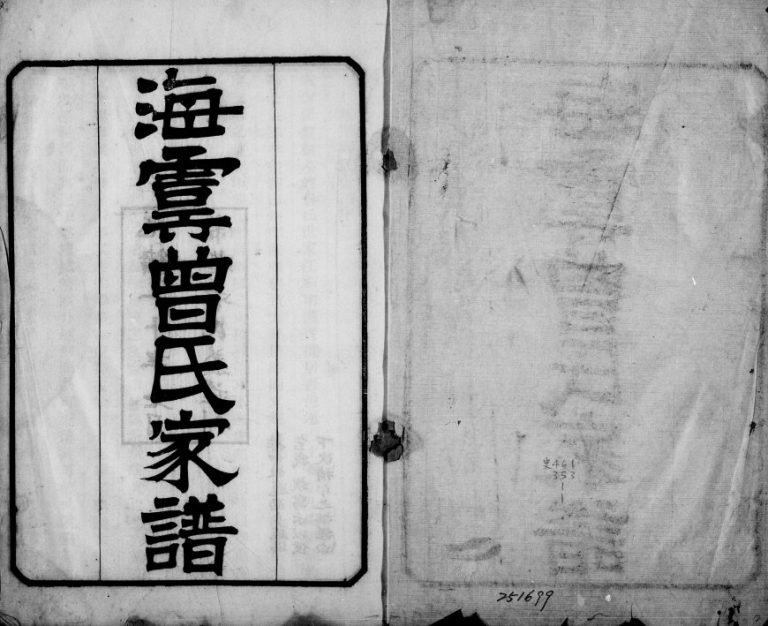 海虞曾氏家譜
史461
353
1
251699